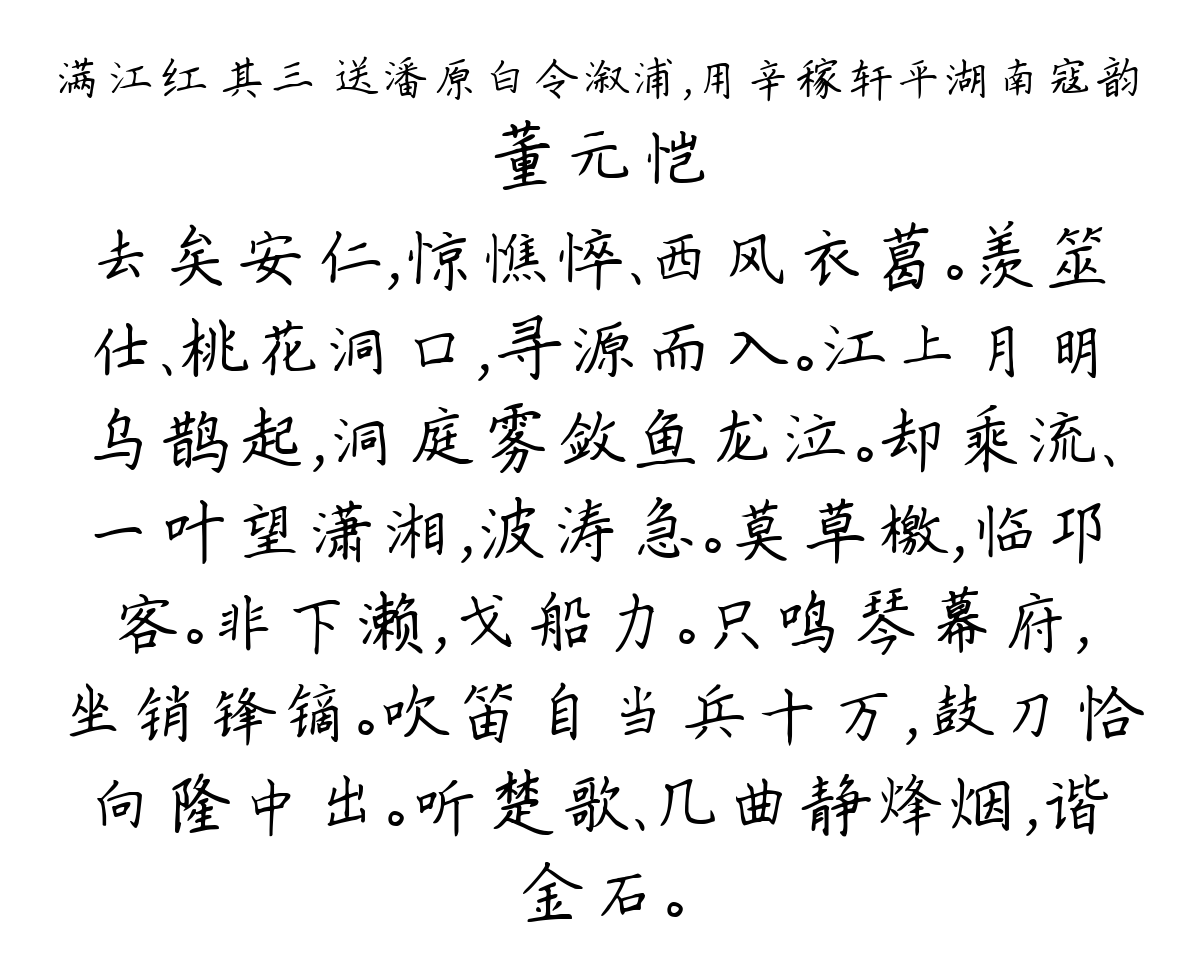 满江红 其三 送潘原白令溆浦,用辛稼轩平湖南寇韵
董元恺
去矣安仁,惊憔悴、西风衣葛。羡筮
仕、桃花洞口,寻源而入。江上月明
乌鹊起,洞庭雾敛鱼龙泣。却乘流、
一叶望潇湘,波涛急。莫草檄,临邛
客。非下濑,戈船力。只鸣琴幕府,
坐销锋镝。吹笛自当兵十万,鼓刀恰
向隆中出。听楚歌、几曲静烽烟,谐
金石。